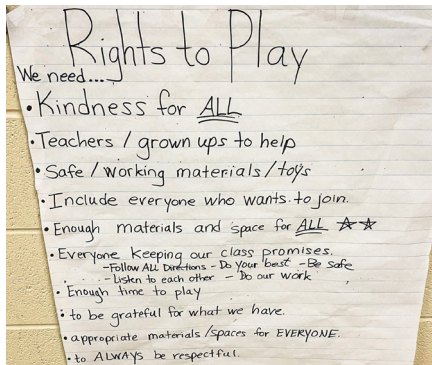 Rights to Play
We need....
• Kindness for ALL
• Teachers / grown ups to help
• Safe / working materials / toys
• Include everyone who wants to join.
• Enough materials and space for ALL ☆☆
• Everyone keeping our class promises.
-Follow ALL Directions - Do your best - Be safe
- Listen to each other - Do our work
• Enough time to play
• to be grateful for what we have.
• appropriate materials/spaces for EVERYONE.
• to ALWAYS be respectful.